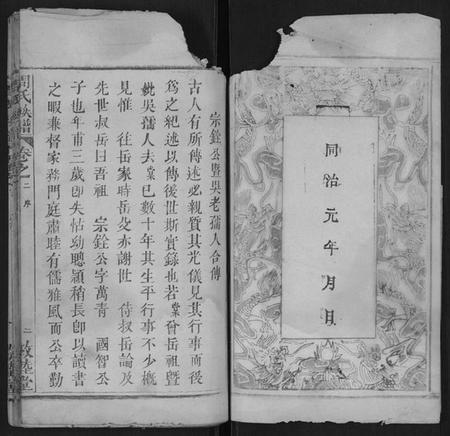 同治元年月日
宗銓公暨吳老孺人合傳
古人有所傳述必親質其光儀見其行事而後
爲之紀述以傳後世斯實錄也若業曾岳祖暨
妣吳孺人去業已數十年其生平行事不少概
見惟 往岳家時岳父亦謝世 侍叔岳論及
先世叔岳曰吾祖 宗銓公字萬青 國智公
子也年甫三歲卽失怙幼聰穎稍長卽以讀書
之暇兼督家務門庭肅睦有儒雅風而公卒勤
周氏族譜 卷之二 序 二 敦睦堂